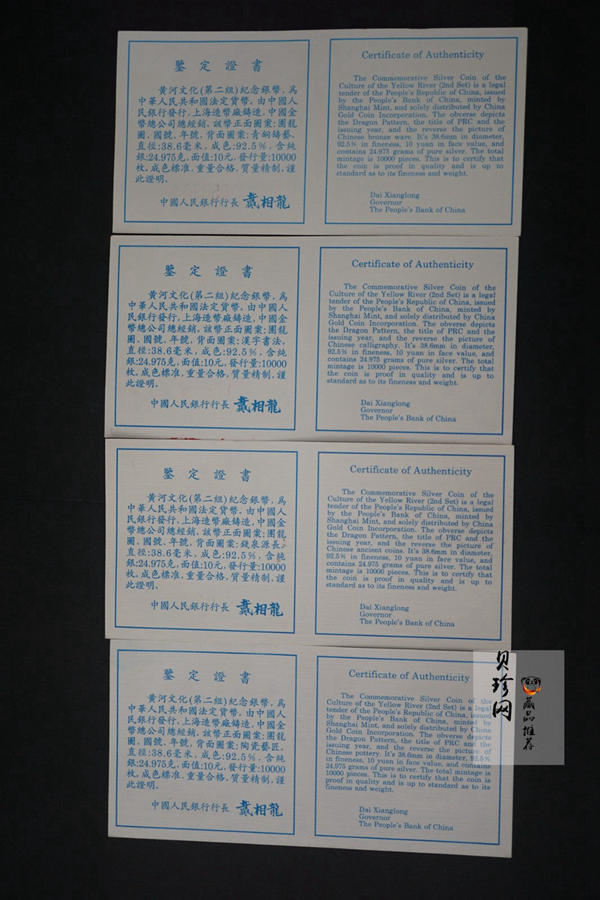 鑒定證書
黃河文化(第二組)紀念銀幣,爲
中華人民共和國法定貨幣,由中國人
民銀行發行,上海造幣廠鑄造,中國金
幣總公司總經銷,該幣正面圖案:團龍
圖、國號、年號,背面圖案:青銅鑄藝,
直徑:38.6毫米,成色:92.5%,含純
銀:24.975克,面值:10元,發行量:10000
枚,成色標准,重量合格,質量精制,謹
此證明。
中國人民銀行行長 戴相龍
Certificate of Authenticity
The Commemorative Silver Coin of the
Culture of the Yellow River (2nd Set) is a legal
tender of the People's Republic of China, issued
by the People's Bank of China, minted by
Shanghai Mint, and solely distributed by China
Gold Coin Incorporation. The obverse depicts
the Dragon Pattern, the title of PRC and the
issuing year, and the reverse the picture of
Chinese bronze ware. It's 38.6mm in diameter,
92.5% in fineness, 10 yuan in face value, and
contains 24.975 grams of pure silver. The total
mintage is 10000 pieces. This is to certify that
the coin is proof in quality and is up to
standard as to its fineness and weight.
Dai Xianglong
Governor
The People's Bank of China
鑒定證書
黃河文化(第二組)紀念銀幣,爲
中華人民共和國法定貨幣,由中國人
民銀行發行,上海造幣廠鑄造,中國金
幣總公司總經銷,該幣正面圖案:團龍
圖、國號、年號,背面圖案:漢字書法,
直徑:38.6毫米,成色:92.5%,含純
銀:24.975克,面值:10元,發行量:10000
枚,成色標准,重量合格,質量精制,謹
此證明。
中國人民銀行行長 戴相龍
Certificate of Authenticity
The Commemorative Silver Coin of the
Culture of the Yellow River (2nd Set) is a legal
tender of the People's Republic of China, issued
by the People's Bank of China, minted by
Shanghai Mint, and solely distributed by China
Gold Coin Incorporation. The obverse depicts
the Dragon Pattern, the title of PRC and the
issuing year, and the reverse the picture of
Chinese calligraphy. It's 38.6mm in diameter,
92.5% in fineness, 10 yuan in face value, and
contains 24.975 grams of pure silver. The total
mintage is 10000 pieces. This is to certify that
the coin is proof in quality and is up to
standard as to its fineness and weight.
Dai Xianglong
Governor
The People's Bank of China
鑒定證書
黃河文化(第二組)紀念銀幣,爲
中華人民共和國法定貨幣,由中國人
民銀行發行,上海造幣廠鑄造,中國金
幣總公司總經銷,該幣正面圖案:團龍
圖、國號、年號,背面圖案:錢泉源長,
直徑:38.6毫米,成色:92.5%,含純
銀:24.975克,面值:10元,發行量:10000
枚,成色標准,重量合格,質量精制,謹
此證明。
中國人民銀行行長 戴相龍
Certificate of Authenticity
The Commemorative Silver Coin of the
Culture of the Yellow River (2nd Set) is a legal
tender of the People's Republic of China, issued
by the People's Bank of China, minted by
Shanghai Mint, and solely distributed by China
Gold Coin Incorporation. The obverse depicts
the Dragon Pattern, the title of PRC and the
issuing year, and the reverse the picture of
Chinese ancient coins. It's 38.6mm in diameter,
92.5% in fineness, 10 yuan in face value, and
contains 24.975 grams of pure silver. The total
mintage is 10000 pieces. This is to certify that
the coin is proof in quality and is up to
standard as to its fineness and weight.
Dai Xianglong
Governor
The People's Bank of China
鑒定證書
黃河文化(第二組)紀念銀幣,爲
中華人民共和國法定貨幣,由中國人
民銀行發行,上海造幣廠鑄造,中國金
幣總公司總經銷,該幣正面圖案:團龍
圖、國號、年號,背面圖案:陶瓷藝匠,
直徑:38.6毫米,成色:92.5%,含純
銀:24.975克,面值:10元,發行量:10000
枚,成色標准,重量合格,質量精制,謹
此證明。
中國人民銀行行長 戴相龍
Certificate of Authenticity
The Commemorative Silver Coin of the
Culture of the Yellow River (2nd Set) is a legal
tender of the People's Republic of China, issued
by the People's Bank of China, minted by
Shanghai Mint, and solely distributed by China
Gold Coin Incorporation. The obverse depicts
the Dragon Pattern, the title of PRC and the
issuing year, and the reverse the picture of
Chinese pottery. It's 38.6mm in diameter, 92.5%
in fineness, 10 yuan in face value, and contains
24.975 grams of pure silver. The total mintage is
10000 pieces. This is to certify that the coin is
proof in quality and is up to standard as to its
fineness and weight.
Dai Xianglong
Governor
The People's Bank of China
贝珍网
藏品
推荐